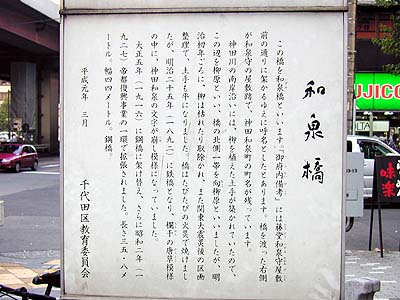 和泉橋
この橋を和泉橋といいます。『御府内備考』には藤堂和泉守屋敷
前の通りに架かるゆえに呼名としたとあります。橋を渡った右側
が和泉守の屋敷跡で、神田和泉町の町名が残っています。
神田川の南岸沿いには、柳を植えた土手が築かれていたので、
この辺を柳原といい、橋の北側一帯を向柳原といいましたが、明
治初年ごろに、柳は枯れたり取除かれ、また関東大震災後の区画
整理で、土手も平になりました。橋はたびたびの火災で焼けまし
たが、明治二十五年(一八九二)に鉄橋となり、欄干の唐草模様
の中に、神田和泉の文字が崩し模様になっていました。
大正五年(一九一六)に鋼橋に架け替え、さらに昭和二年(一
九二七)帝都復興事業の一環で拡張されました。長さ三五・八メ
ートル。幅四四メートル。鋼橋。
平成元年 三月
千代田区教育委員会
UJICO
味楽